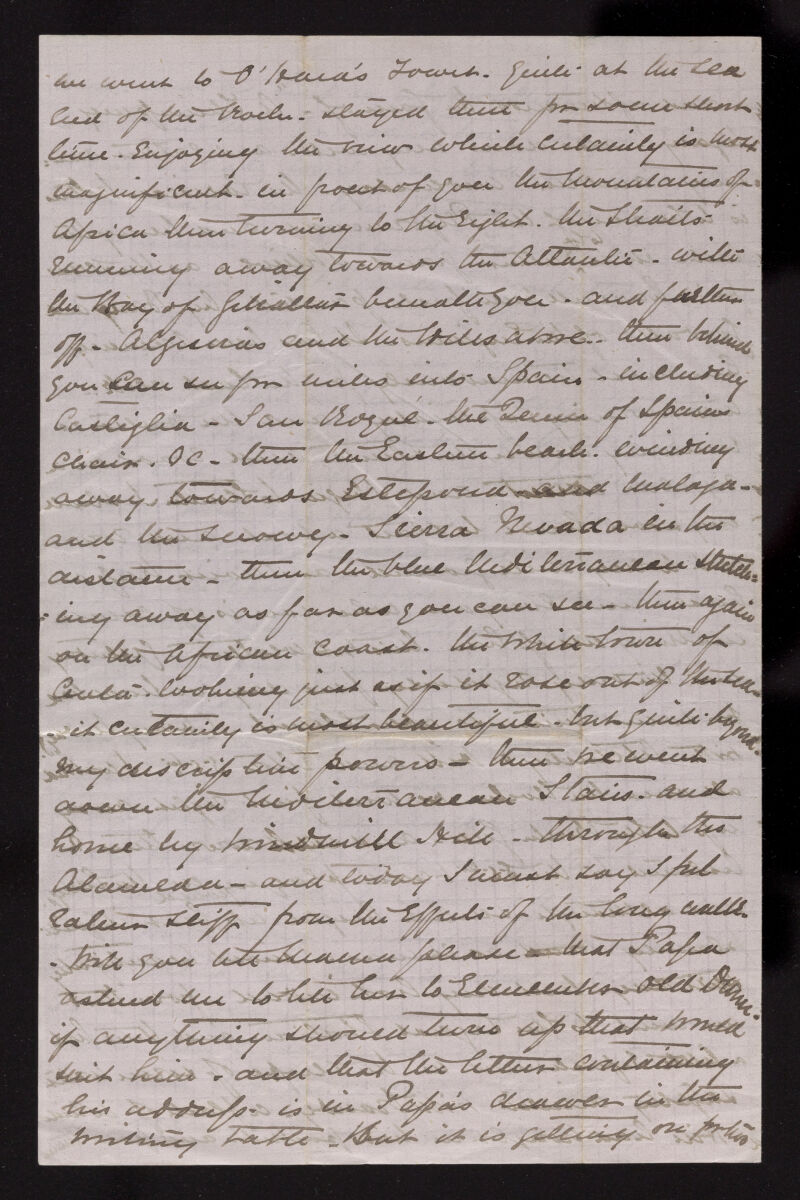 we went to O'Hara's Tower - quite at the sea
end of the Rock - stayed there for some short
time - Enjoying the view which certainly is most
magnificent - in front of you the Mountains of
Africa then turning to the Right - the Straits
running away towards the Atlantic - with
the Bay of Gibraltar beneath you - and further
off - Algesiras and the Hills above - then behind
you can see for miles into Spain - including
Castiglia - San Roque - the Queen of Spain's
chair - &c - then the Eastern beach - winding
away towards Estepona and Malaga -
and the Snowy - Sierra Nevada in the
distance - then the blue Mediterranean stretch=
=ing away as far as you can see - then again
on the African Coast - the White town of
Ceuta - looking just as if it rose out of the sea -
- it certainly is most beautiful - but quite beyond
my descriptive powers - then we went
down the Mediterranean Stairs - and
home by Windmill Hill - through the
Alameda - and today I must say I feel
rather stiff from the Effects of the long walk -
- Will you tell Mama please - that Papa
asked me to tell her to remember old
if anything should turn up that would
suit him - and that the letter containing
his address - is in Papa's drawer in the
writing table - But it is getting on